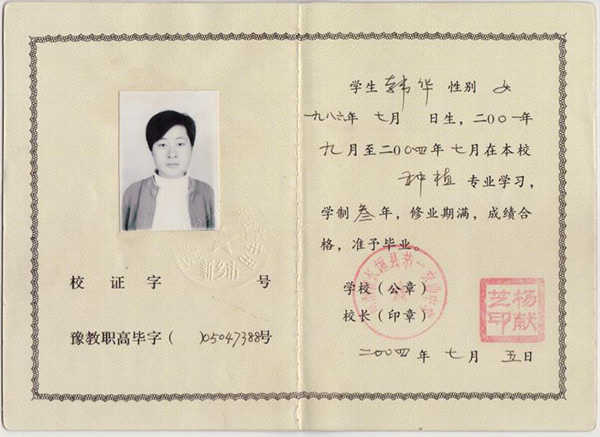 校 证 字 号
豫教职高毕字( )05047388号
学生 韩华 性别 女
一九八六年 七月 日生，二〇〇一年
九月至二〇〇四年七月在本校
种植 专业学习，
学制叁年，修业期满，成绩合
格，准予毕业。
学校（公章）
校长（印章）
杨献芝印
二〇〇四年 七月 五日